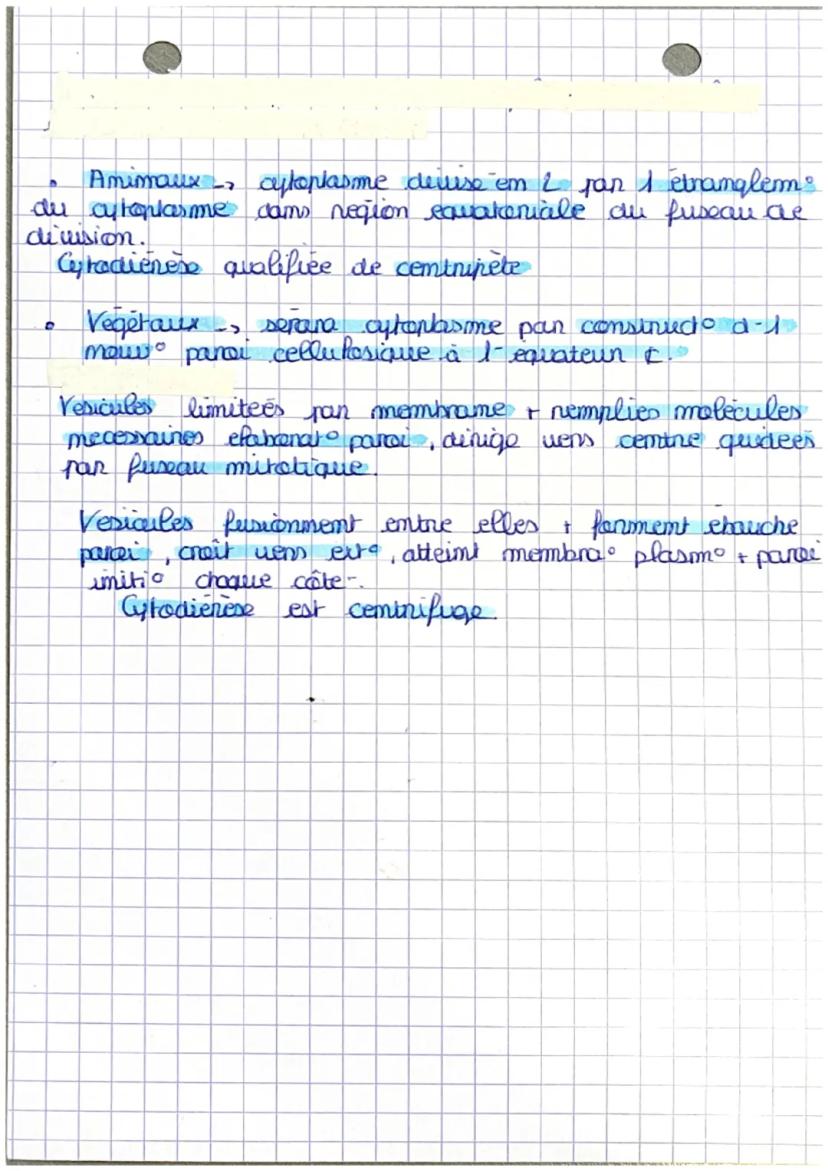 • Animaux -> cytoplasme divise en 2 par 1 étranglem°
du cytoplasme dans région équatoriale du fuseau de
division.
Cytodiérèse qualifiée de centripète
• Végétaux -> sépara cytoplasme par constructo d-1
nouv° paroi cellulosique à l-équateur ¢.
Vésicules limitées par membrane + remplies molécules
nécessaires élaborat° paroi, dirige vers centre guidées
par fuseau mitotique.
Vésicules fusionnent entre elles + forment ébauche
paroi, croît vers ext°, atteint membra° plasm° + paroi
initi° chaque côté-.
Cytodiérèse est centrifuge.